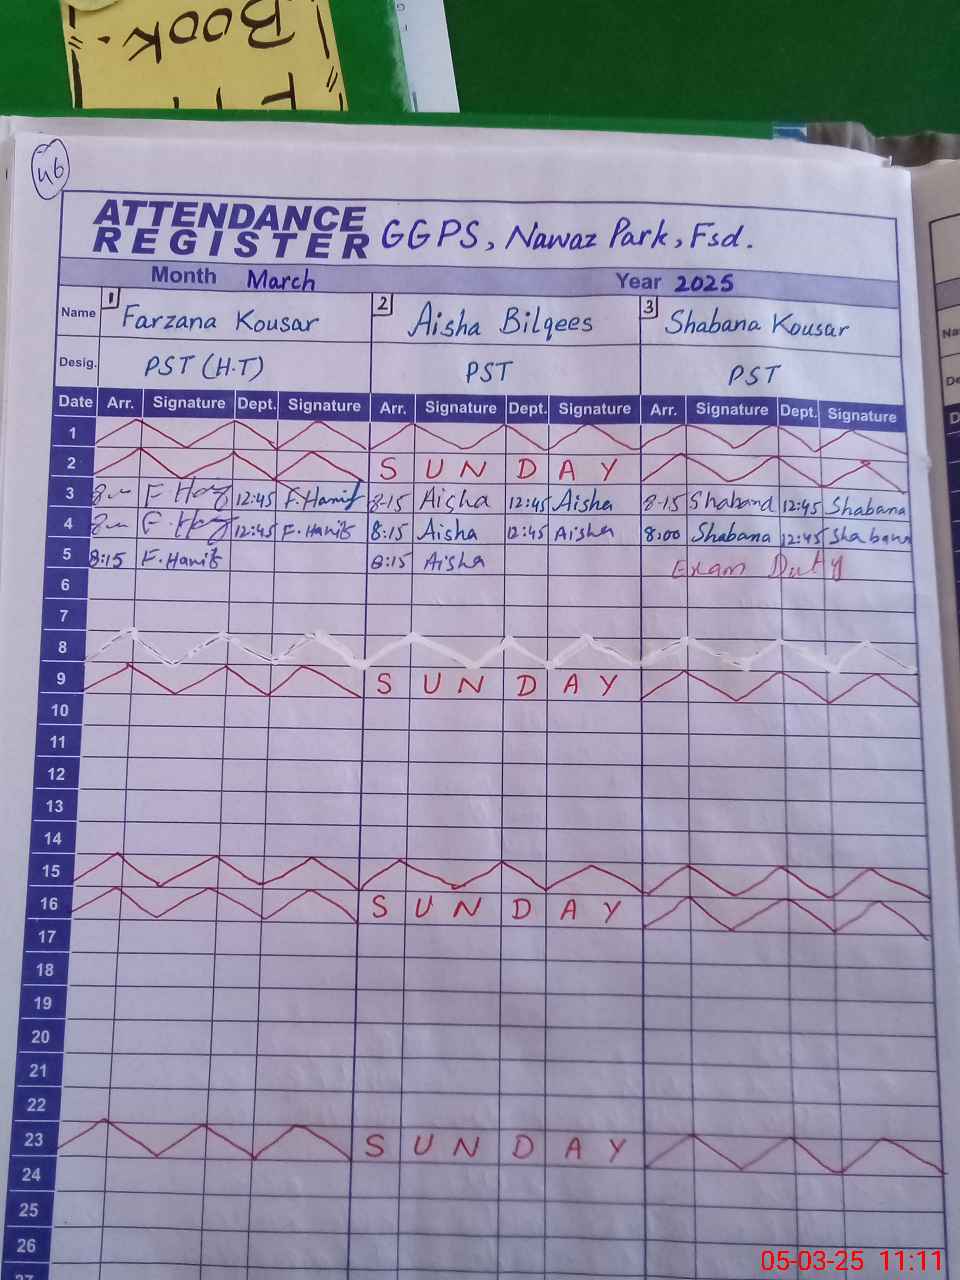 Book.
46
ATTENDANCE
REGISTER GGPS, Nawaz Park, Fsd.
Month March Year 2025
Name 1 Farzana Kousar 2 Aisha Bilqees 3 Shabana Kousar
Desig. PST (H.T) PST PST
Date Arr. Signature Dept. Signature Arr. Signature Dept. Signature Arr. Signature Dept. Signature
1
2 SUNDAY
3 12:45 F.Hanif 8-15 Aisha 12:45 Aisha 8-15 Shabana 12:45 Shabana
4 12:45 F.Hanif 8:15 Aisha 12:45 Aisha 8:00 Shabana 12:45 Shabana
5 8:15 F.Hanif 8:15 Aisha Exam Duty
6
7
8
9 SUNDAY
10
11
12
13
14
15
16 SUNDAY
17
18
19
20
21
22
23 SUNDAY
24
25
26
27
05-03-25 11:11